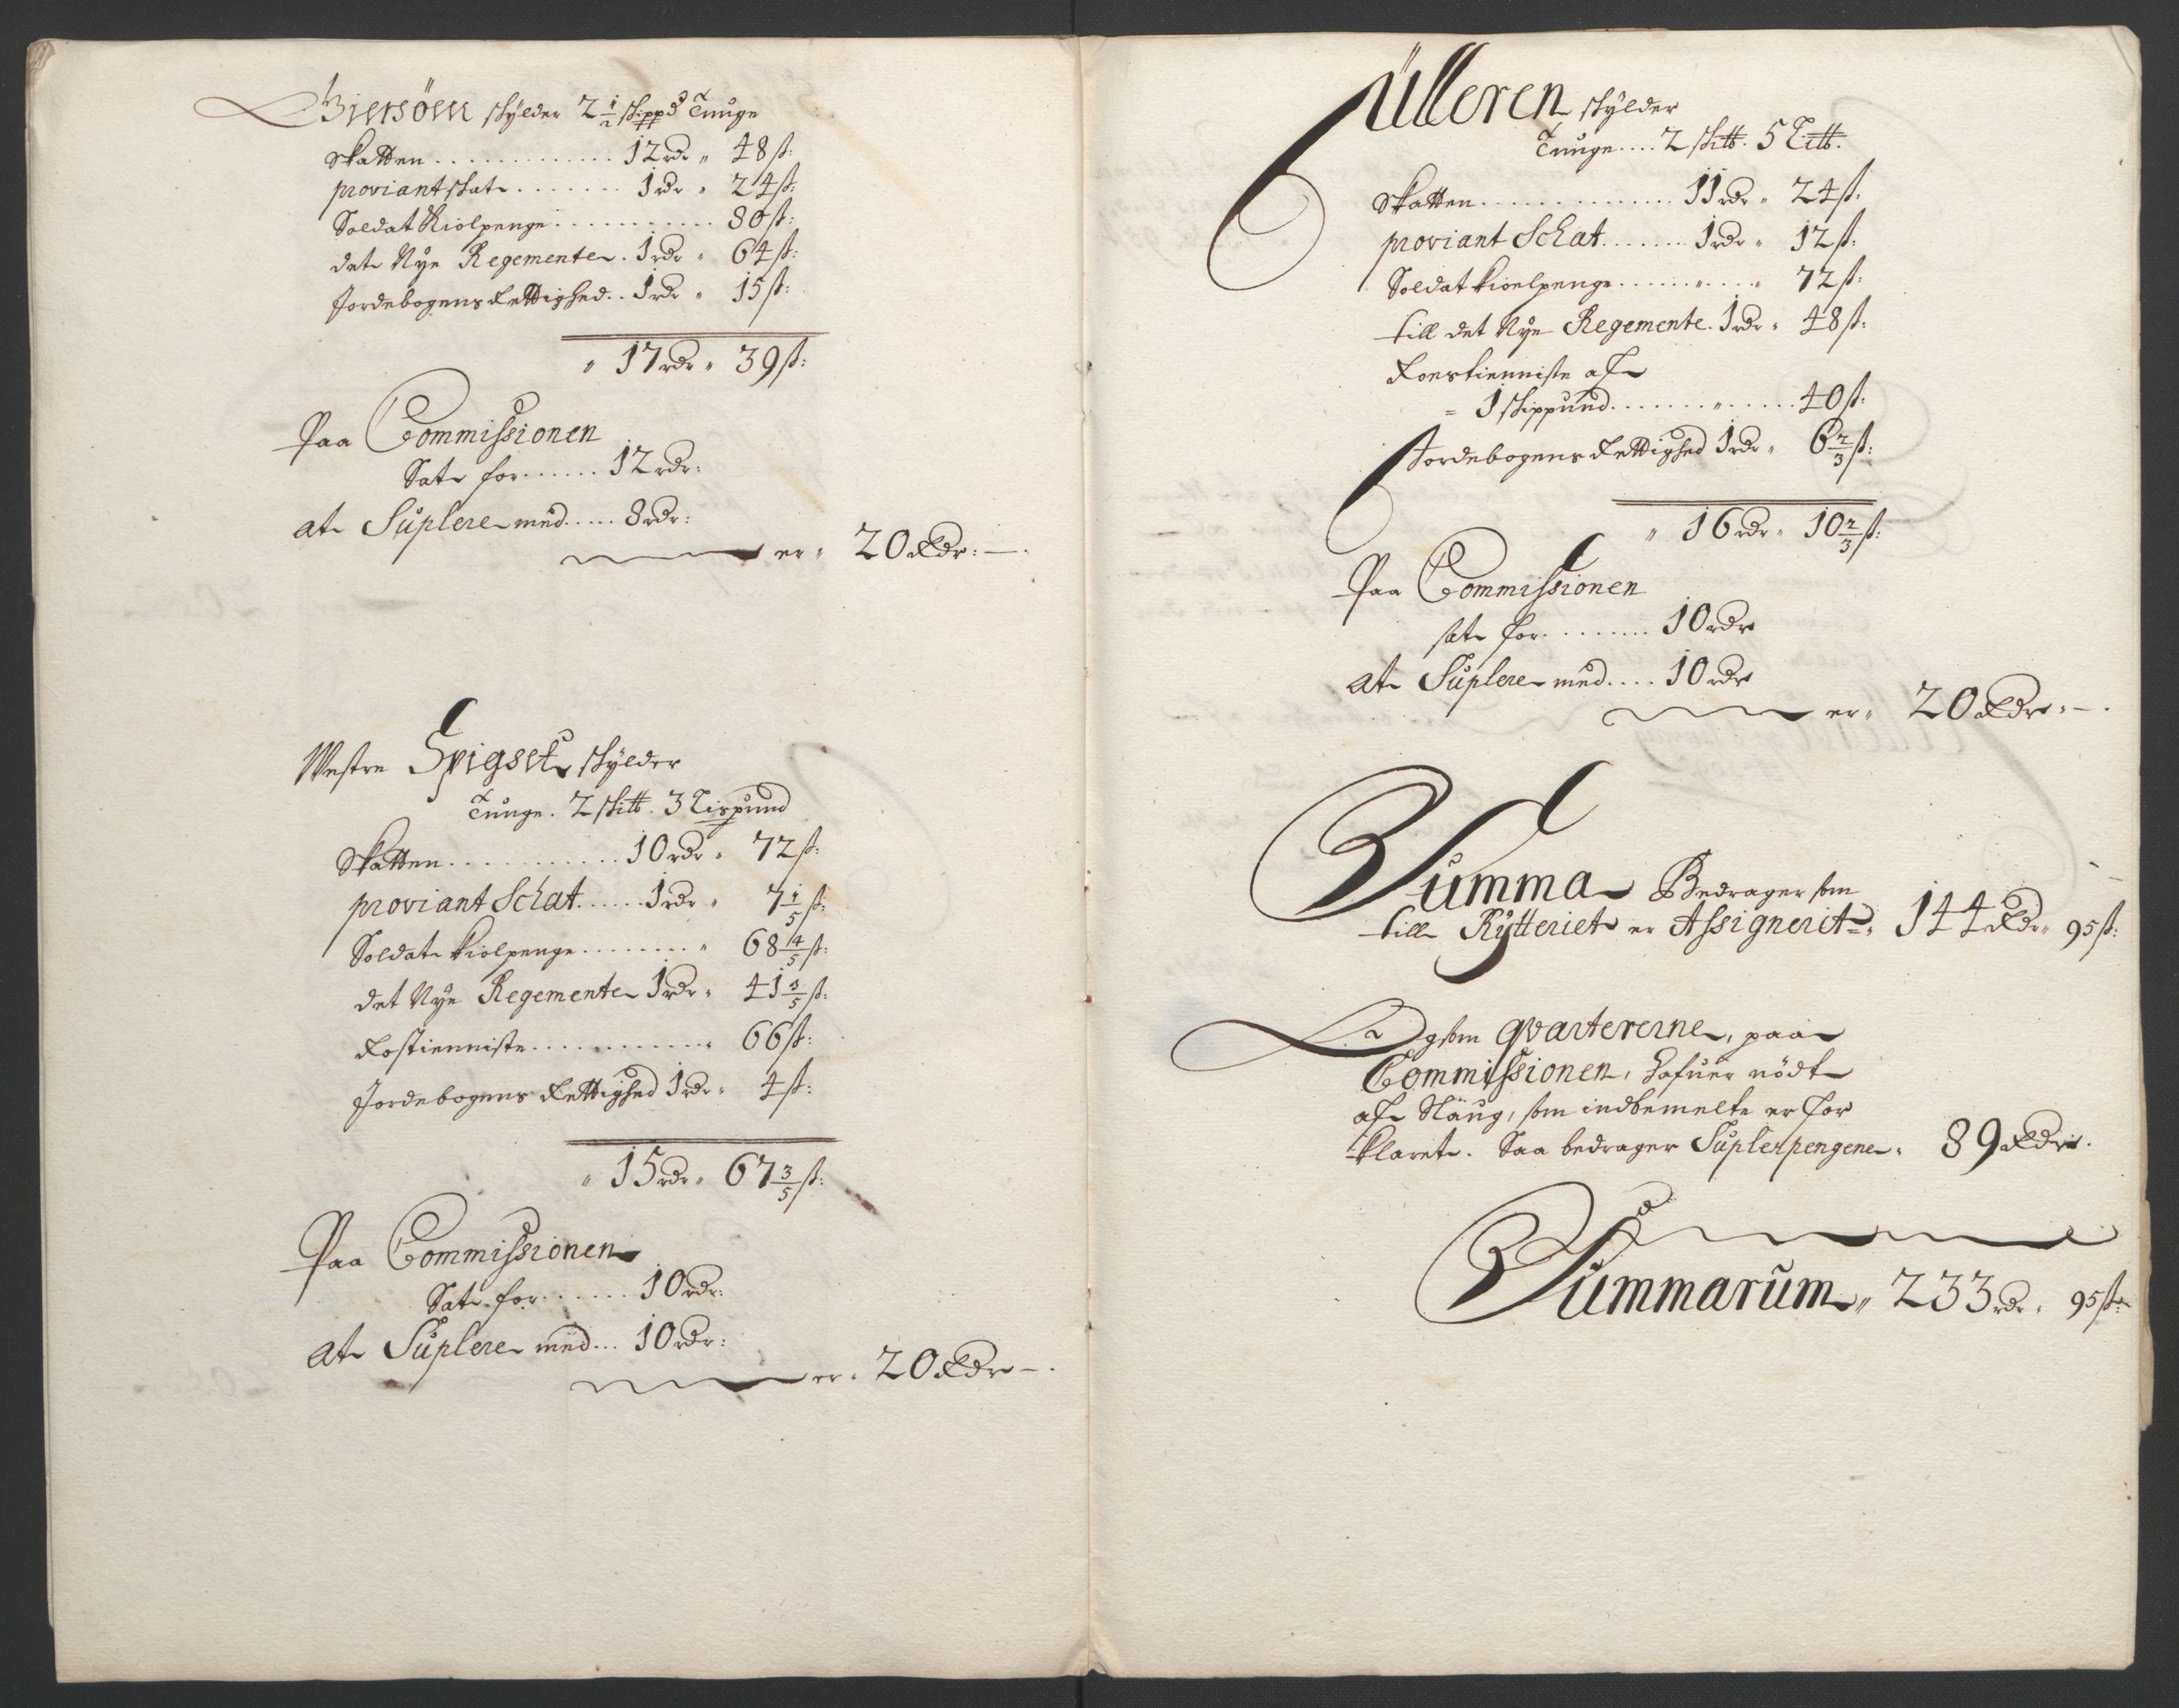 Biersöen skylder 2 1/2 skippd Tunge
Skatten . . . . . . . . . . . . . 12 rdr " 48 ß:
proviantskat . . . . . . . 1 rdr " 24 ß:
Soldat Kiolpenge . . . . . . . . . . . 80 ß:
det Nye Regemente . 1 rdr " 64 ß:
Jordebogens Rettighed . . 1 rdr " 15 ß:
" 17 rdr " 39 ß:
Paa Commissionen
Sat for . . . . . . 12 rdr:
at Suplere med . . . . . 8 rdr:
er " 20 Rdr: —
Westre Spigset skylder
Tunge . 2 sk℔ . 3 Lispund
Skatten . . . . . . . . . . . . 10 rdr " 72 ß:
proviant Schat . . . . . . 1 rdr " 7 1/5 ß:
Soldat kiolpenge . . . . . . . . . " 68 4/5 ß:
det Nye Regemente 1 rdr " 41 3/5 ß:
Rostienniste . . . . . . . . . . . . " 66 ß:
Jordebogens Rettighed 1 rdr " 4 ß:
" 15 rdr " 67 3/5 ß:
Paa Commissionen
Sat for . . . . . . 10 rdr:
at Suplere med . . . 10 rdr:
er " 20 Rdr —
Ülleren skylder
Tunge . . . . 2 sk℔ . 5 Li℔ .
Skatten . . . . . . . . . . . . . . 11 rdr " 24 ß:
proviant Schat . . . . . . . 1 rdr " 12 ß:
Soldat kioelpenge . . . . . . " . . . . " 72 ß:
till det Nye Regemente . 1 rdr " 48 ß:
Roestienniste af
= 1 skippund . . . . . . . . " . . . . . 40 ß:
Jordebogens Rettighed 1 rdr " 6 2/3 ß:
" 16 rdr " 10 2/3 ß:
Paa Commissionen
sat for . . . . . . . . 10 rdr
at Suplere med . . . . 10 rdr
er " 20 Rdr " —
Summa Bedrager som
till Rytteriet er Assignerit " 144 Rdr " 95 ß:
Og som qvartererne, paa
Commissionen, hafuer nödt
af Släug, som indbemelte er for
klaret . Saa bedrager Suplerpengene " 89 Rdr .
Summarum " 233 rdr " 95 ß: